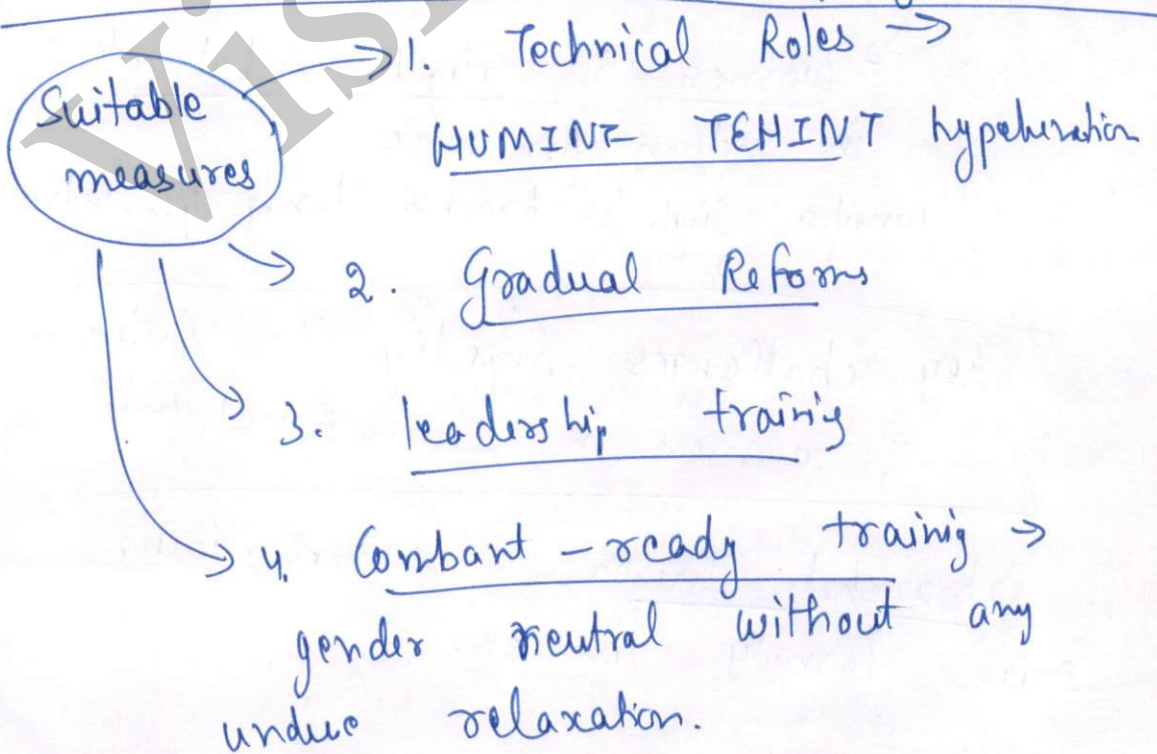 Vis
Suitable
measures
1. Technical Roles →
HUMINT TEHINT
2. Gradual Reforms
3. leadership trainig
4. Combant - ready trainig →
gender neutral without any
undue relaxation.